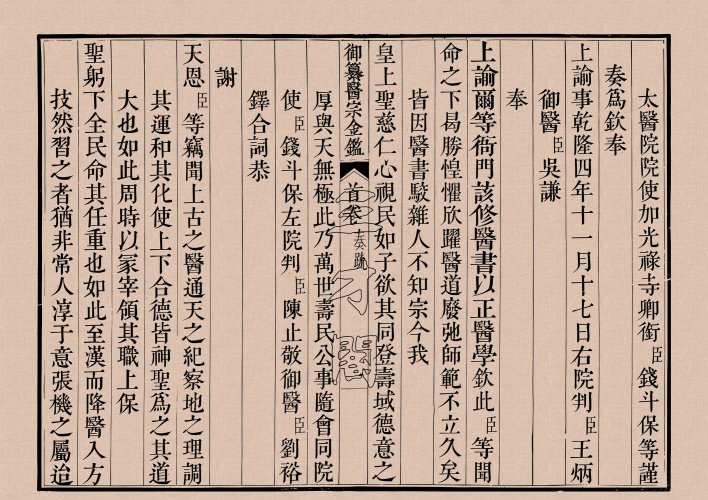 太醫院院使加光祿寺卿銜臣錢斗保等謹
奏爲欽奉
上諭事乾隆四年十一月十七日右院判臣王炳
御醫臣吳謙
奉
上諭爾等衙門該修醫書以正醫學欽此臣等聞
命之下曷勝惶懼欣躍醫道廢弛師範不立久矣
皆因醫書駮雜人不知宗今我
皇上聖慈仁心視民如子欲其同登壽域德意之
御纂醫宗金鑑 首卷 奏疏
厚與天無極此乃萬世壽民公事隨會同院
使臣錢斗保左院判臣陳止敬御醫臣劉裕
鐸合詞恭
謝
天恩臣等竊聞上古之醫通天之紀察地之理調
其運和其化使上下合德皆神聖爲之其道
大也如此周時以冢宰領其職上保
聖躬下全民命其任重也如此至漢而降醫入方
技然習之者猶非常人淳于意張機之屬迨